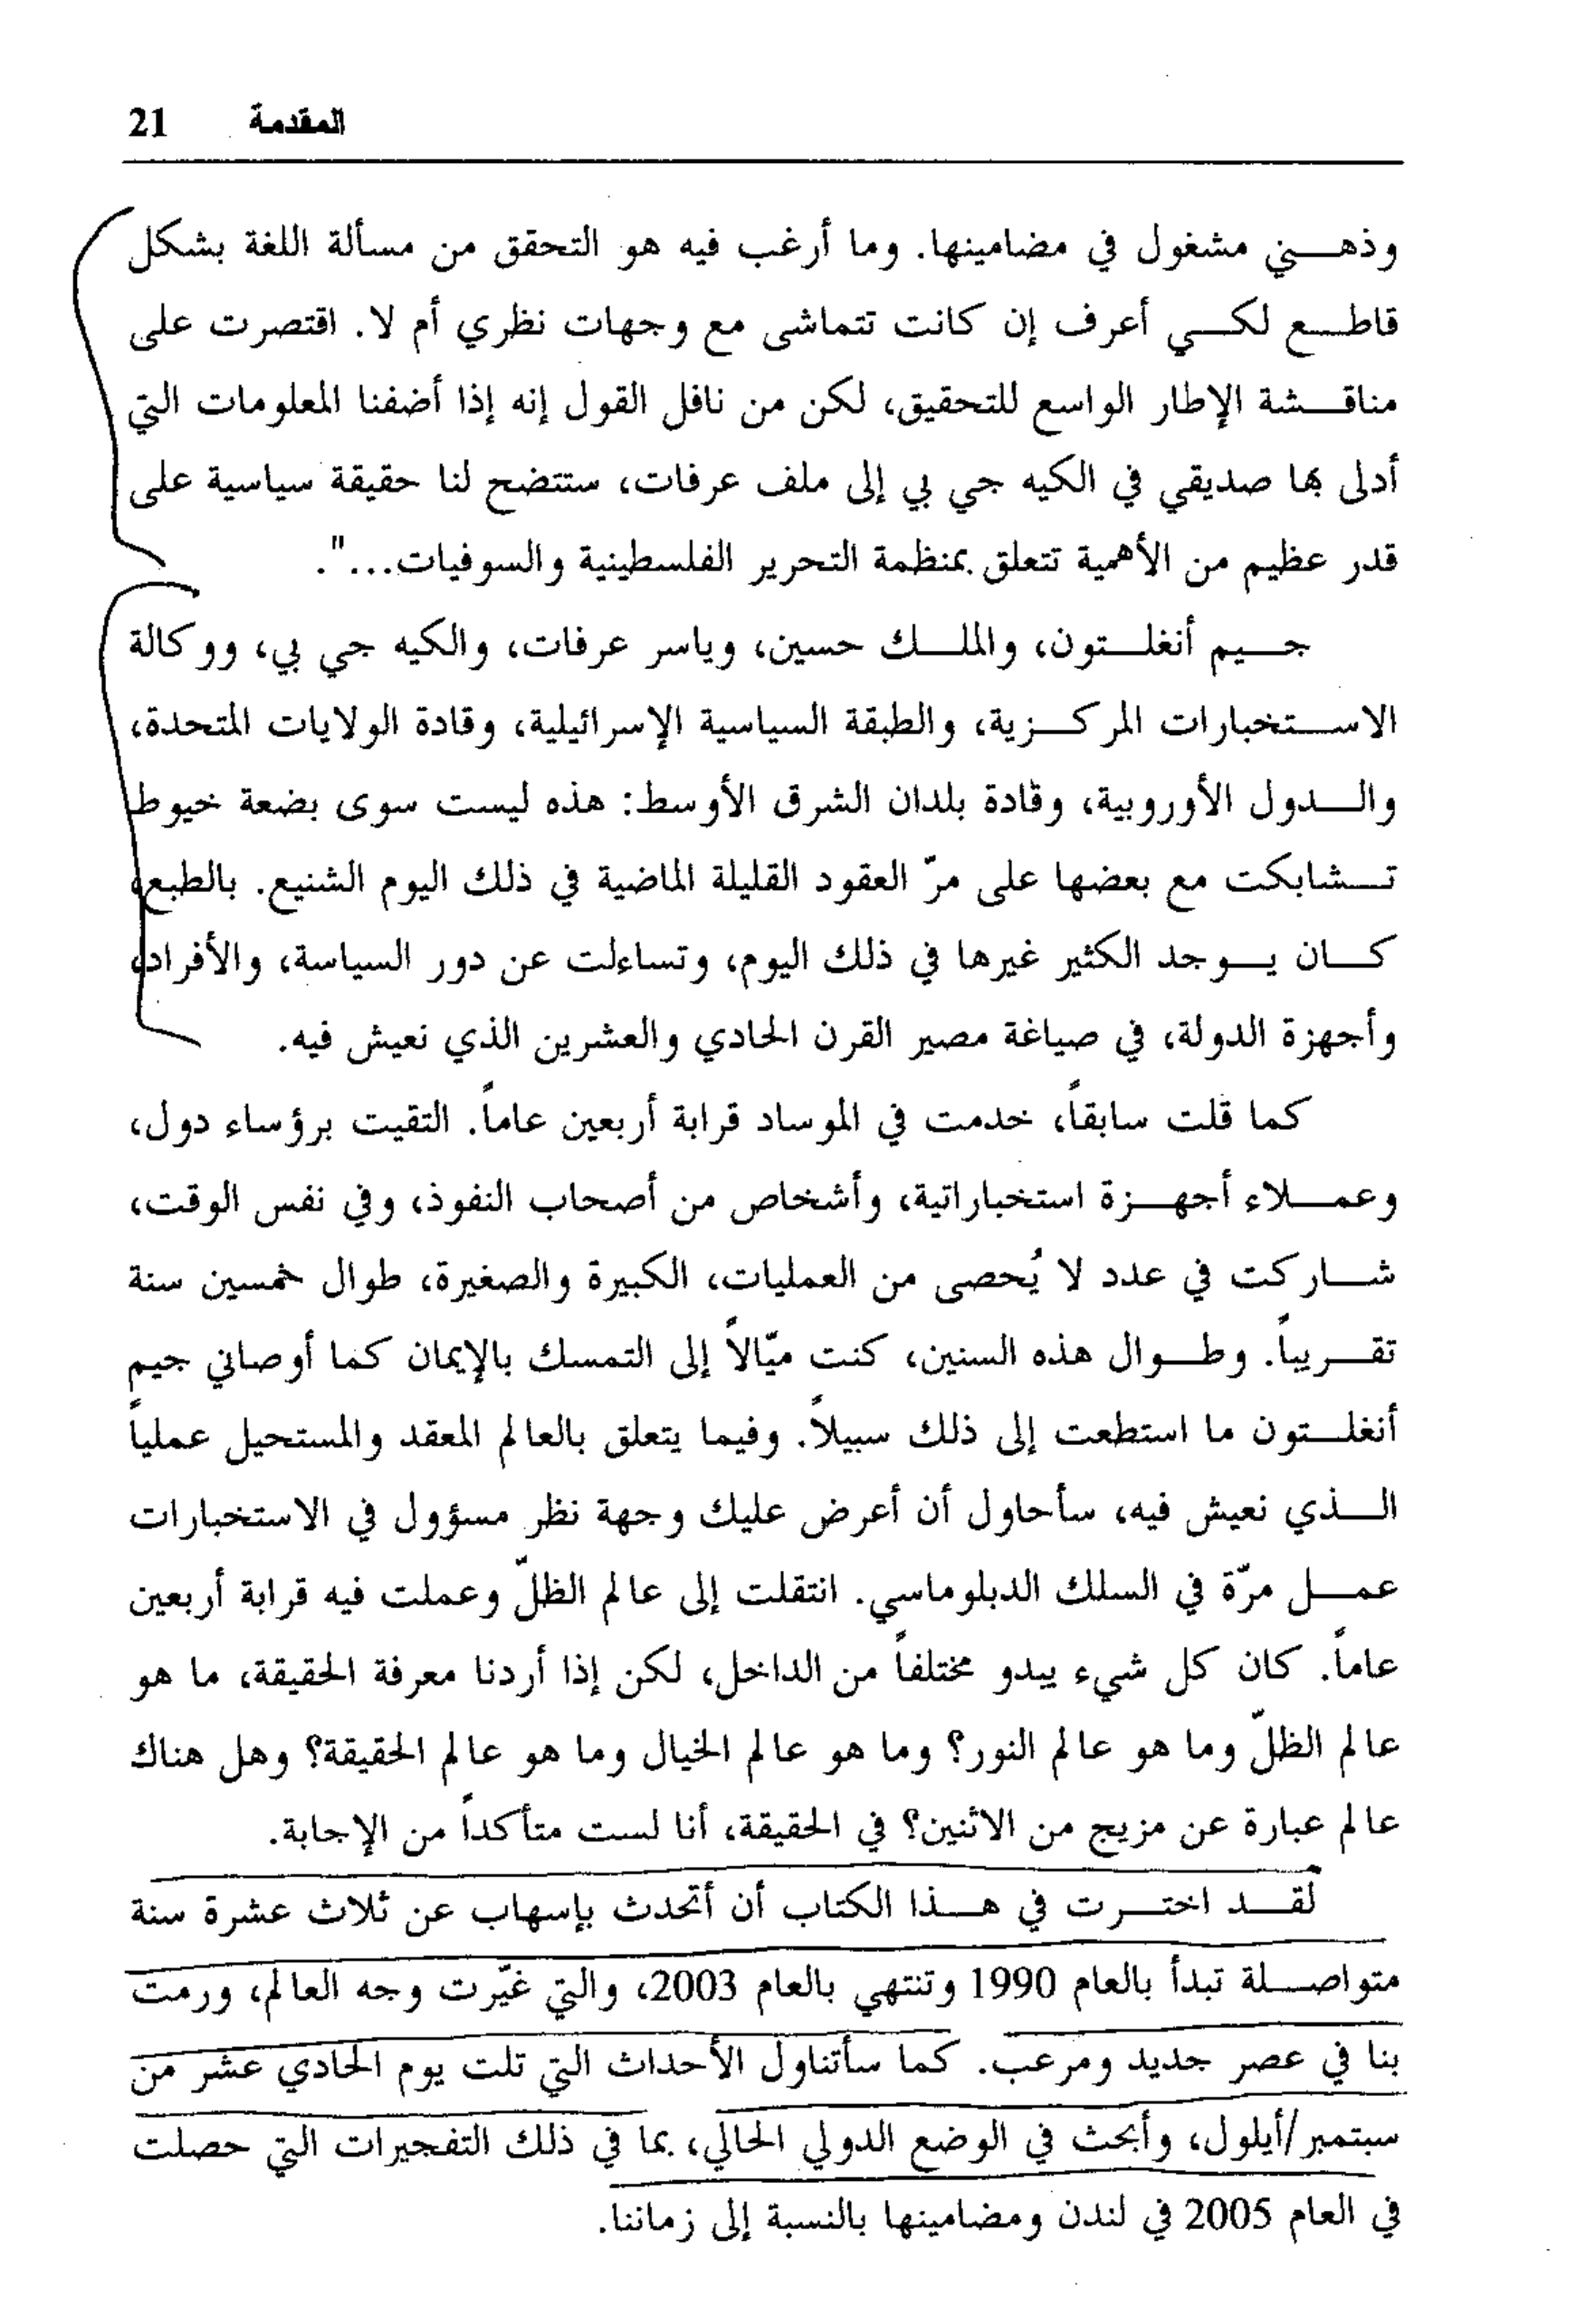 المقدمة 21
وذهني مشغول في مضامينها. وما أرغب فيه هو التحقق من مسألة اللغة بشكل
قاطع لكي أعرف إن كانت تتماشى مع وجهات نظري أم لا. اقتصرت على
مناقشة الإطار الواسع للتحقيق، لكن من نافل القول إنه إذا أضفنا المعلومات التي
أدلى بها صديقي في الكيه جي بي إلى ملف عرفات، ستتضح لنا حقيقة سياسية على
قدر عظيم من الأهمية تتعلق بمنظمة التحرير الفلسطينية والسوفيات...".
جيم أنغلتون، والملك حسين، وياسر عرفات، والكيه جي بي، ووكالة
الاستخبارات المركزية، والطبقة السياسية الإسرائيلية، وقادة الولايات المتحدة،
والدول الأوروبية، وقادة بلدان الشرق الأوسط: هذه ليست سوى بضعة خيوط
تشابكت مع بعضها على مرّ العقود القليلة الماضية في ذلك اليوم الشنيع. بالطبع،
كان يوجد الكثير غيرها في ذلك اليوم، وتساءلت عن دور السياسة، والأفراد،
وأجهزة الدولة، في صياغة مصير القرن الحادي والعشرين الذي نعيش فيه.
كما قلت سابقاً، خدمت في الموساد قرابة أربعين عاماً. التقيت برؤساء دول،
وعملاء أجهزة استخباراتية، وأشخاص من أصحاب النفوذ، وفي نفس الوقت،
شاركت في عدد لا يُحصى من العمليات، الكبيرة والصغيرة، طوال خمسين سنة
تقريباً. وطوال هذه السنين، كنت ميّالاً إلى التمسك بالإيمان كما أوصاني جيم
أنغلتون ما استطعت إلى ذلك سبيلاً. وفيما يتعلق بالعالم المعقد والمستحيل عملياً
الذي نعيش فيه، سأحاول أن أعرض عليك وجهة نظر مسؤول في الاستخبارات
عمل مرّة في السلك الدبلوماسي. انتقلت إلى عالم الظلّ وعملت فيه قرابة أربعين
عاماً. كان كل شيء يبدو مختلفاً من الداخل، لكن إذا أردنا معرفة الحقيقة، ما هو
عالم الظلّ وما هو عالم النور؟ وما هو عالم الخيال وما هو عالم الحقيقة؟ وهل هناك
عالم عبارة عن مزيج من الاثنين؟ في الحقيقة، أنا لست متأكداً من الإجابة.
لقد اخترت في هذا الكتاب أن أتحدث بإسهاب عن ثلاث عشرة سنة
متواصلة تبدأ بالعام 1990 وتنتهي بالعام 2003، والتي غيّرت وجه العالم، ورمت
بنا في عصر جديد ومرعب. كما سأتناول الأحداث التي تلت يوم الحادي عشر من
سبتمبر/أيلول، وأبحث في الوضع الدولي الحالي، بما في ذلك التفجيرات التي حصلت
في العام 2005 في لندن ومضامينها بالنسبة إلى زماننا.